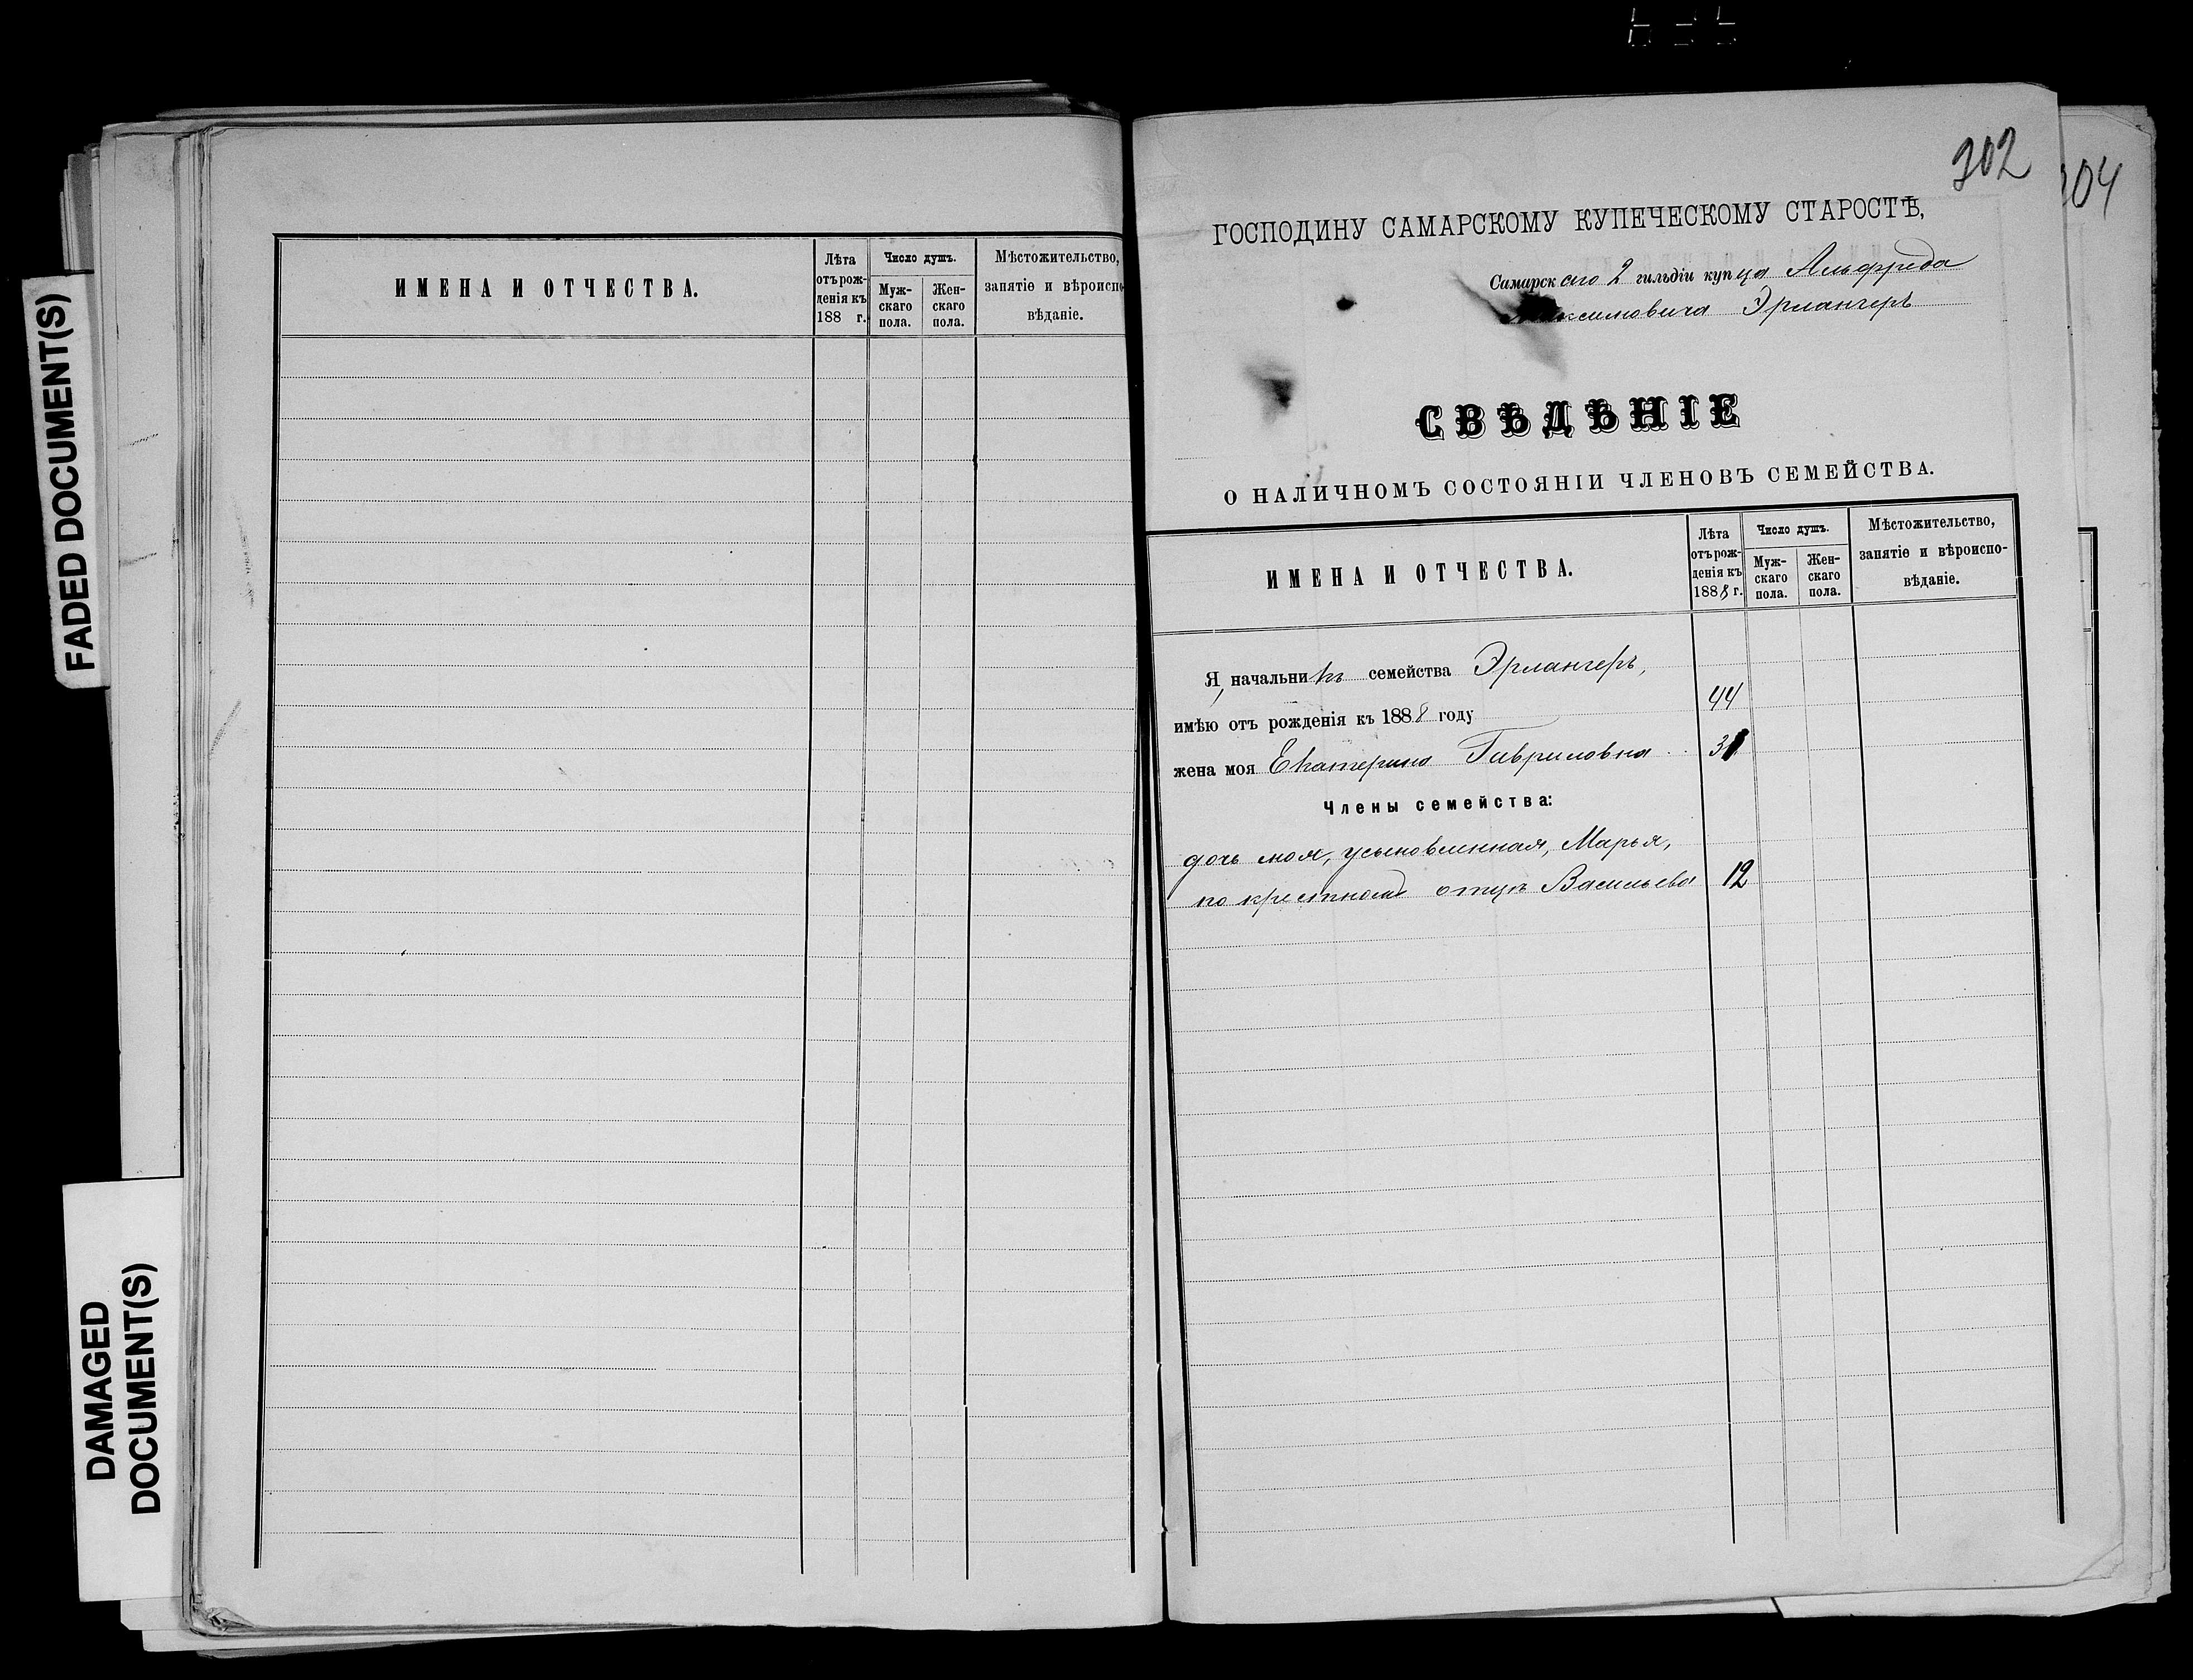 FADED DOCUMENT(S)
DAMAGED
DOCUMENT(S)
ИМЕНА И ОТЧЕСТВА.
Лѣта
отъ рож-
денія къ
188 г.
Число душъ.
Муж-
скаго
пола.
Жен-
скаго
пола.
Мѣстожительство,
занятіе и вѣроиспо
вѣданіе.
302
04
ГОСПОДИНУ САМАРСКОМУ КУПЕЧЕСКОМУ СТАРОСТѢ,
Самарскаго 2 гильдіи купца Альфреда
Максимовича Эрлангеръ
СВѢДѢНІЕ
О НАЛИЧНОМЪ СОСТОЯНІИ ЧЛЕНОВЪ СЕМЕЙСТВА.
ИМЕНА И ОТЧЕСТВА.
Лѣта
отъ рож-
денія къ
1888 г.
Число душъ.
Муж-
скаго
пола.
Жен-
скаго
пола.
Мѣстожительство,
занятіе и вѣроиспо-
вѣданіе.
Я, начальникъ семейства Эрлангеръ,
имѣю отъ рожденія къ 1888 году 44
жена моя Екатерина Гавриловна
Члены семейства:
дочь моя, усыновленная, Марья,
по крестному отцу Васильева 12